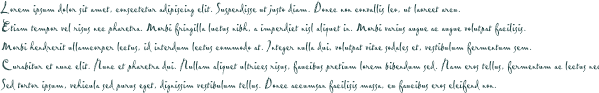 Lorem ipsum dolor sit amet, consectetur adipiscing elit. Suspendisse ut justo diam. Donec non convallis leo, ut laoreet arcu.
Etiam tempor vel risus nec pharetra. Morbi fringilla luctus nibh, a imperdiet nisl aliquet in. Morbi varius augue ac augue volutpat facilisis.
Morbi hendrerit ullamcorper lectus, id interdum lectus commodo at. Integer nulla dui, volutpat vitae sodales et, vestibulum fermentum sem.
Curabitur et nunc elit. Nunc et pharetra dui. Nullam aliquet ultrices risus, faucibus pretium lorem bibendum sed. Nam eros tellus, fermentum ac lectus nec
Sed tortor ipsum, vehicula sed purus eget, dignissim vestibulum tellus. Donec accumsan facilisis massa, eu faucibus eros eleifend non.